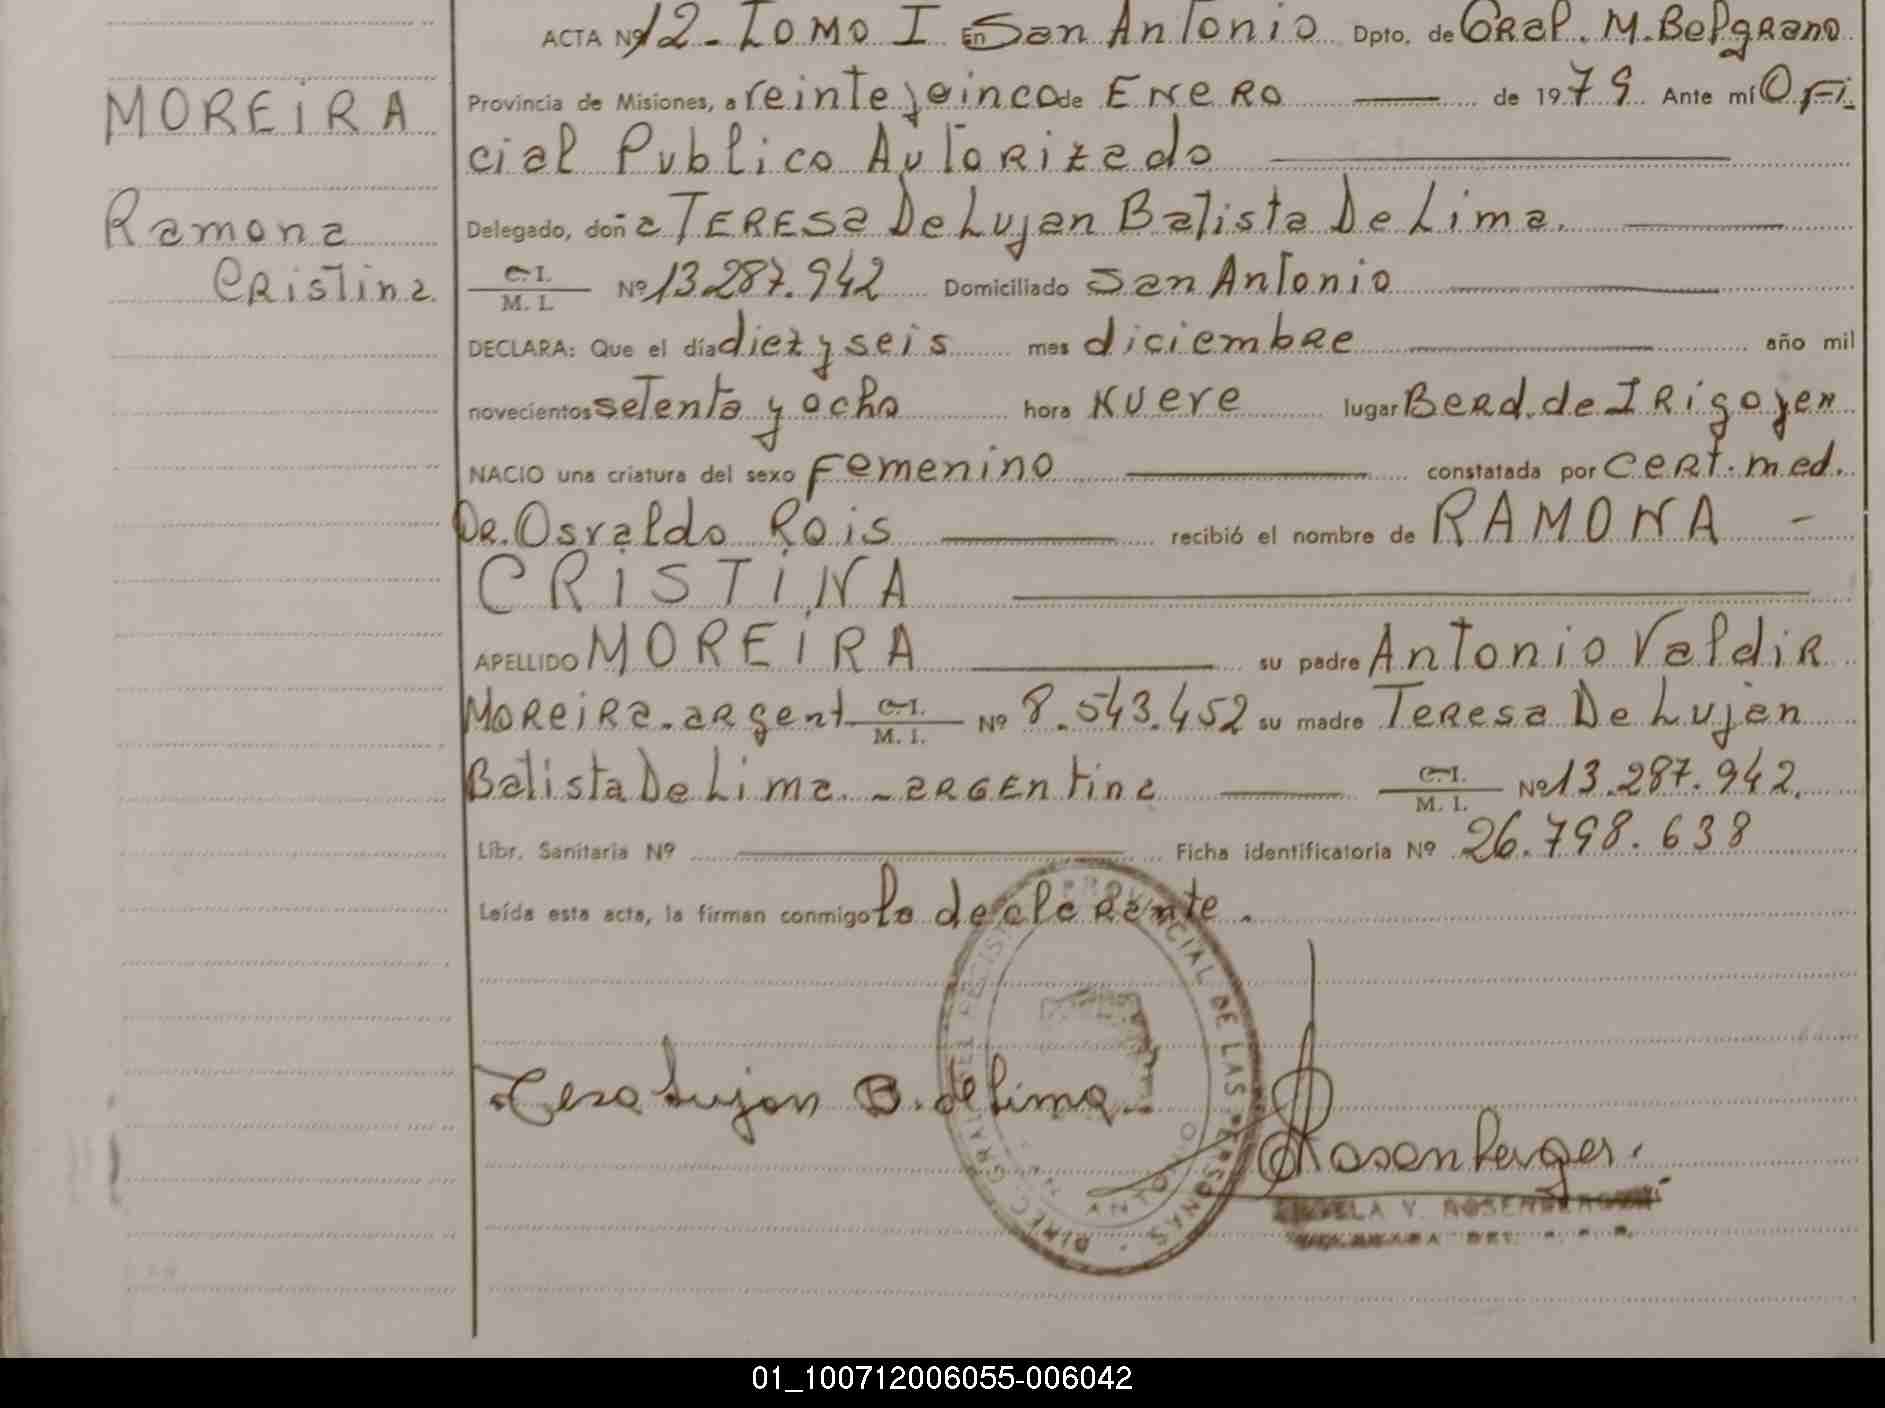 ACTA Nº 12 - TOMO I En San Antonio Dpto. de Gral. M. Belgrano
MOREIRA
Provincia de Misiones, a veinte y cinco de ENERO de 1979 Ante mí Ofi-
cial Publico Autorizado
Ramona
Delegado, doña TERESA De Lujan Batista De Lima.
Cristina
C. I.
M. I. Nº 13.287.942 Domiciliado San Antonio
DECLARA: Que el día diez y seis mes diciembre año mil
novecientos setenta y ocho hora nueve lugar Berd. de IRigoyen
NACIO una criatura del sexo Femenino constatada por CERT. med.
DR. Osvaldo Rois recibió el nombre de RAMONA -
CRISTINA
APELLIDO MOREIRA su padre Antonio Valdir
Moreira - argent. C. I. M. I. Nº 8.543.452 su madre Teresa De Lujan
Batista De Lima. - argentina C. I. M. I. Nº 13.287.942.
Libr. Sanitaria Nº Ficha identificatoria Nº 26.798.638
Leída esta acta, la firman conmigo la declarante.
Teresa Lujan B. de Lima
Rosenberger.
DIREC. GRAL. DEL REGISTRO PROVINCIAL DE LAS PERSONAS
V. ROSENBERGER
01_100712006055-006042